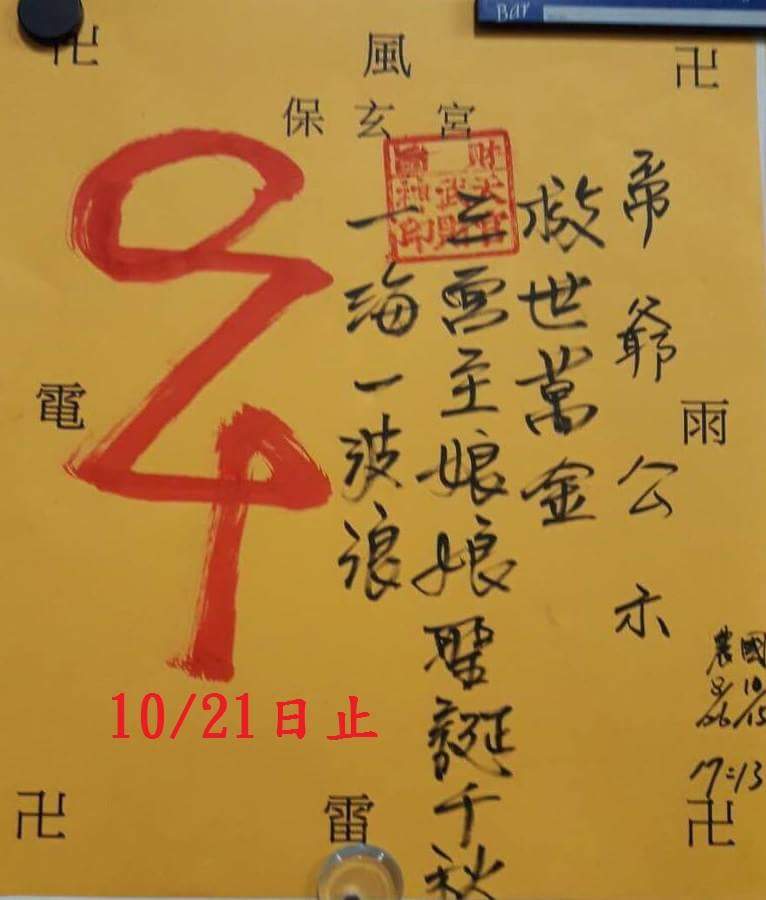 Bar
卍 風 卍
保玄宮
帝爺公示
救世萬金
三宮主娘娘聖誕千秋
一海一波浪
電 雨
國 10/15
農 8/26
17:13
10/21日止
卍 雷 卍